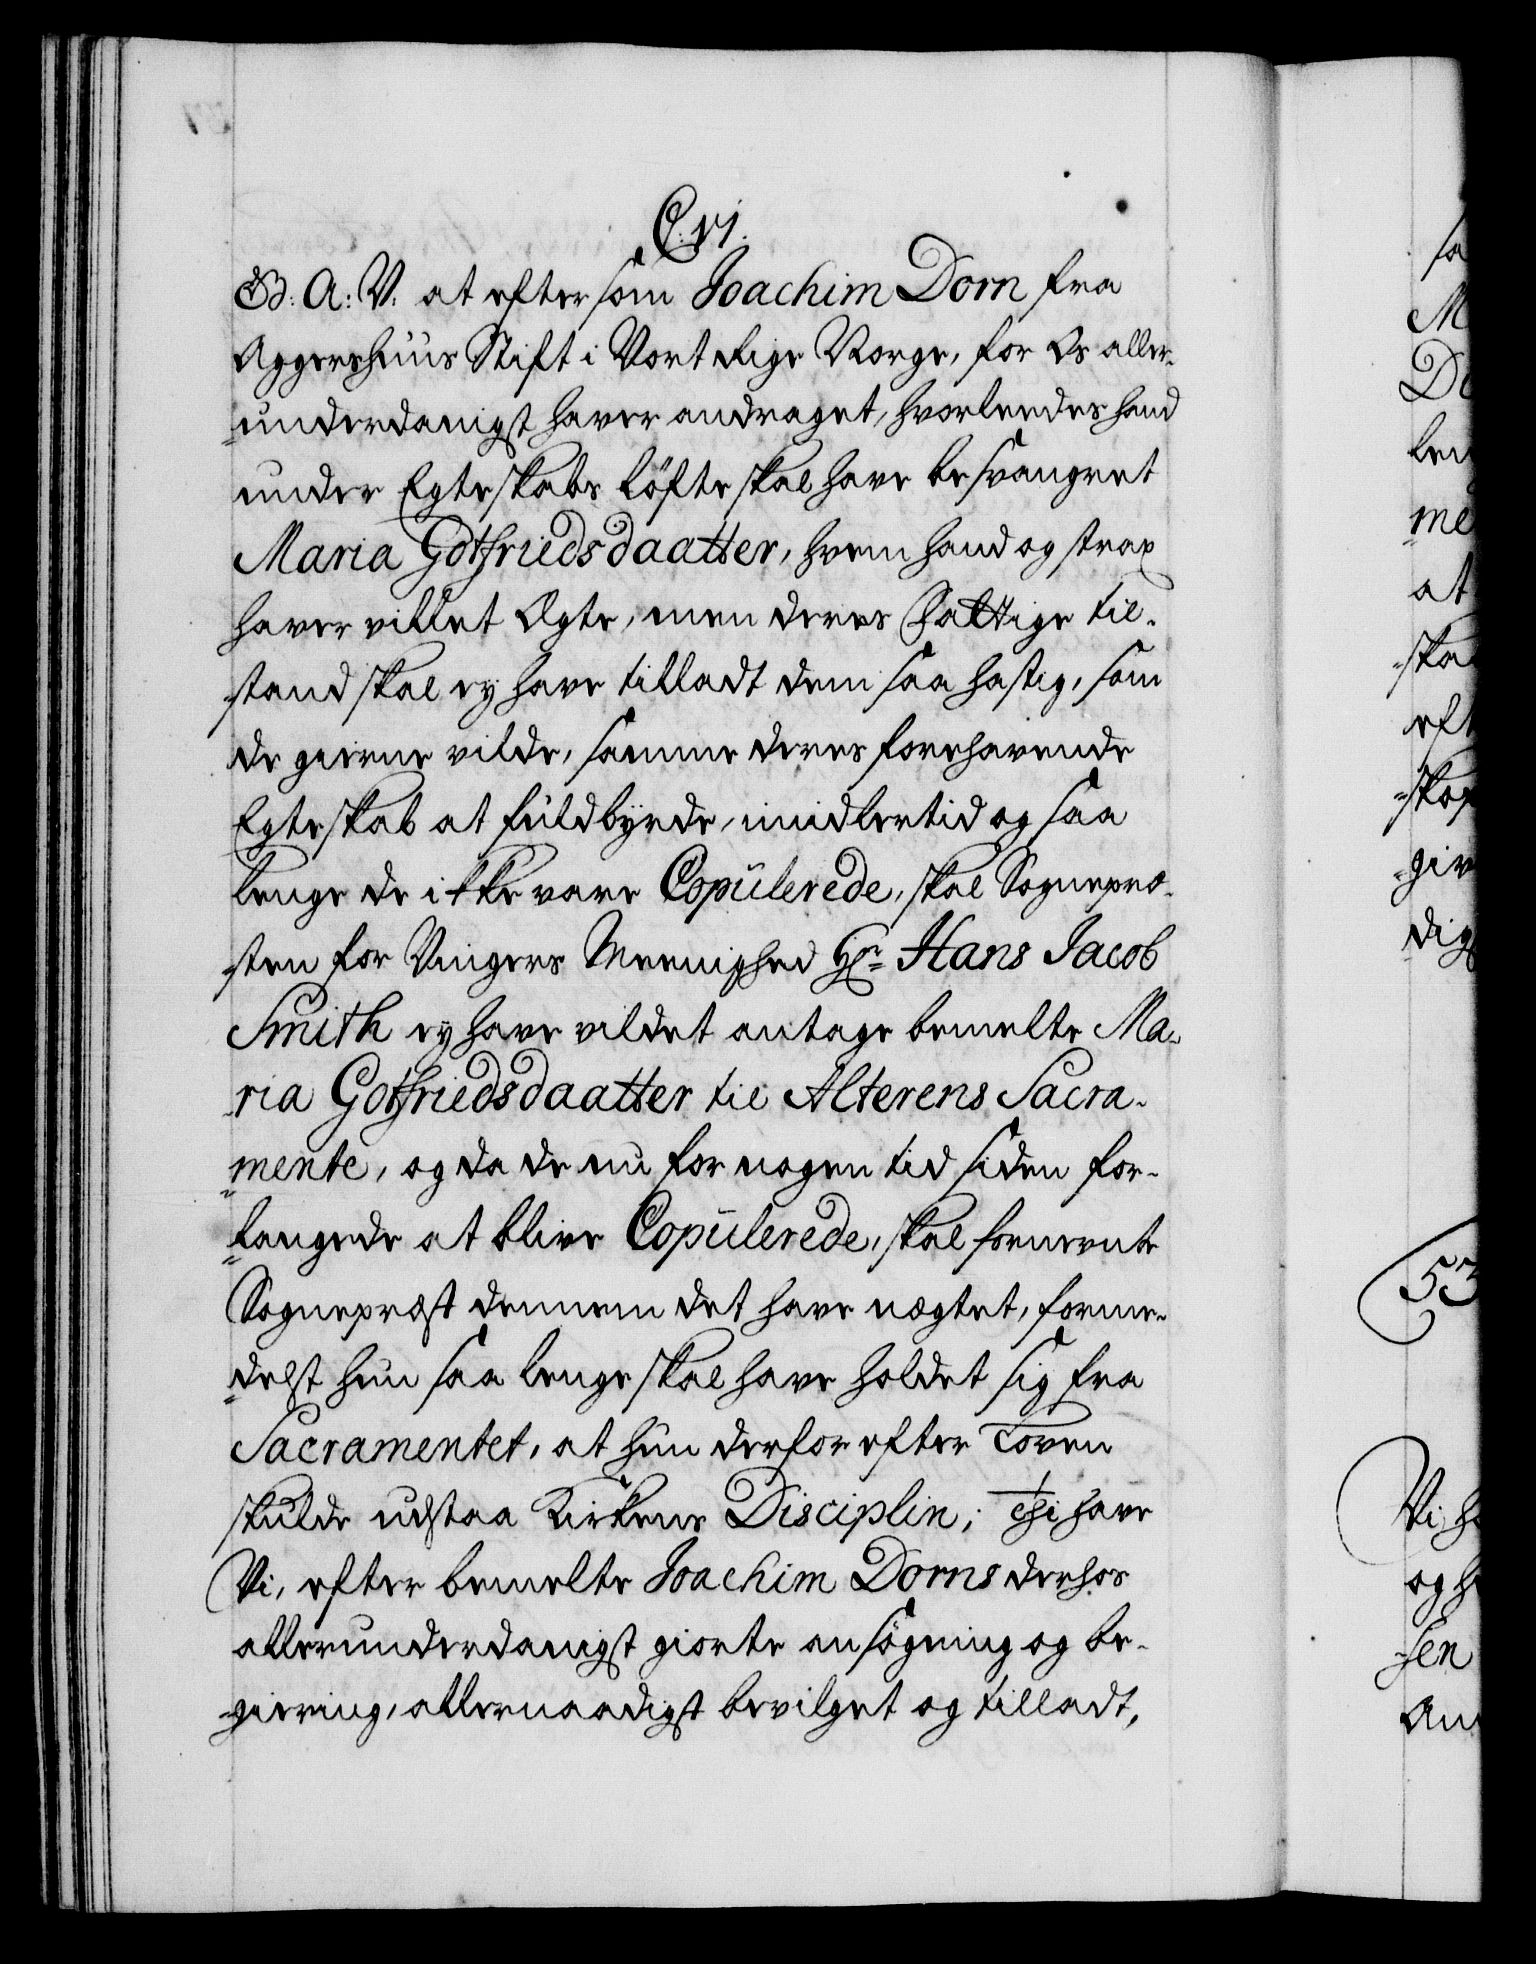 C: VI.
G: A: V. at eftersom Joachim Dorn fra
Aggershuus Stift i Vort Rige Norge, for Os aller-
underdanigst haver andraget, hvorleedes hand
under Egteskabs löfte skal have besvangret
Maria Gotfriedsdaatter, hvem hand og strax
haver villet Ægte, men deres Fattige til-
stand skal ey have tilladt dem saa hastig, som
de gierne vilde, samme deres forehavende
Egteskab at fuldbyrde, imidlertid og saa
lenge de ikke vare Copulerede, skal Sognepræ-
sten for Vingers Meenighed Hr. Hans Jacob
Smith ey have vildet antage bemelte Ma-
ria Gotfriedsdaatter til Alterens Sacra-
mente, og da de nu for nogen tid siden for-
langede at blive Copulerede, skal fornevnte
Sognepræst dennem det have nægtet, forme-
delst hun saa lenge skal have holdet sig fra
Sacramentet, at hun derfor efter Loven
skulde udstaa Kirkens Disciplin; Thi have
Vi, efter bemelte Joachim Dorns derhos
allerunderdanigst giorte ansögning og be-
giering, allernaadigst bevilget og tilladt,